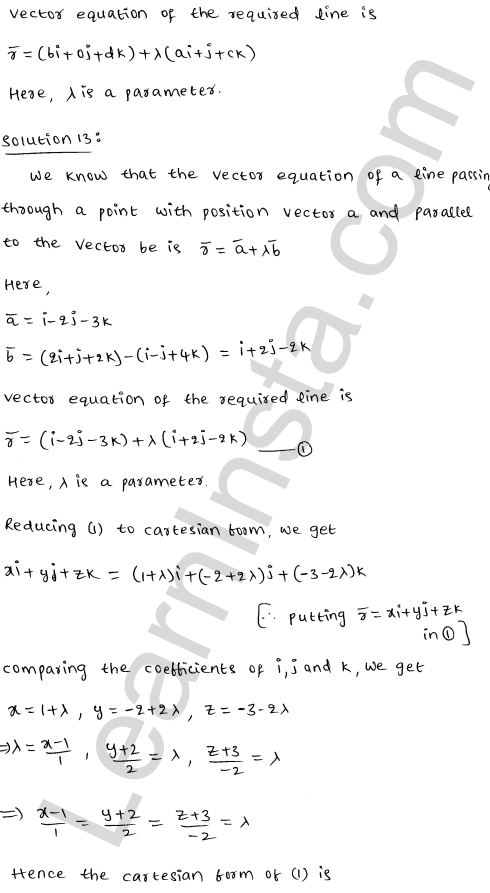 vector equation of the required line is
r̄ = (bi+0j+dk)+λ(ai+j+ck)
Here, λ is a parameter.
Solution 13:
We know that the vector equation of a line passing
through a point with position vector a and parallel
to the vector be is r̄ = ā+λb̄
Here,
ā = i-2j-3k
b̄ = (2i+j+2k)-(i-j+4k) = i+2j-2k
vector equation of the required line is
r̄ = (i-2j-3k)+λ(i+2j-2k) —— ①
Here, λ is a parameter.
Reducing (1) to cartesian form, we get
xi+yj+zk = (1+λ)i+(-2+2λ)j+(-3-2λ)k
[∵ putting r̄ = xi+yj+zk
in ①]
comparing the coefficients of i,j and k, we get
x=1+λ, y=-2+2λ, z=-3-2λ
⇒λ = x-1/1, y+2/2 = λ, z+3/-2 = λ
⇒ x-1/1 = y+2/2 = z+3/-2 = λ
Hence the cartesian form of (1) is
LearnInsta.com